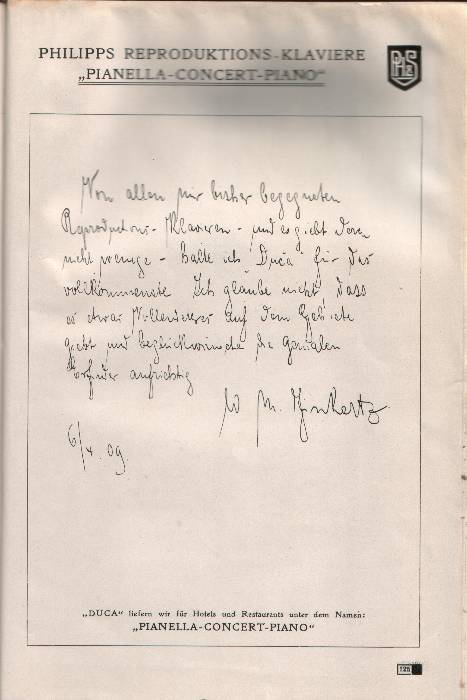 PHILIPPS REPRODUKTIONS-KLAVIERE
„PIANELLA-CONCERT-PIANO“
Von allen mir bisher begegneten
Reproductions-Klavieren - und es giebt deren
nicht wenige - halte ich „Duca“ für das
vollkommenste Ich glaube nicht, dass
es etwas Vollendeteres auf dem Gebiete
giebt und beglückwünsche die genialen
Erfinder aufrichtig
W M.
6/X. 09.
„DUCA“ liefern wir für Hotels und Restaurants unter dem Namen:
„PIANELLA-CONCERT-PIANO“
125